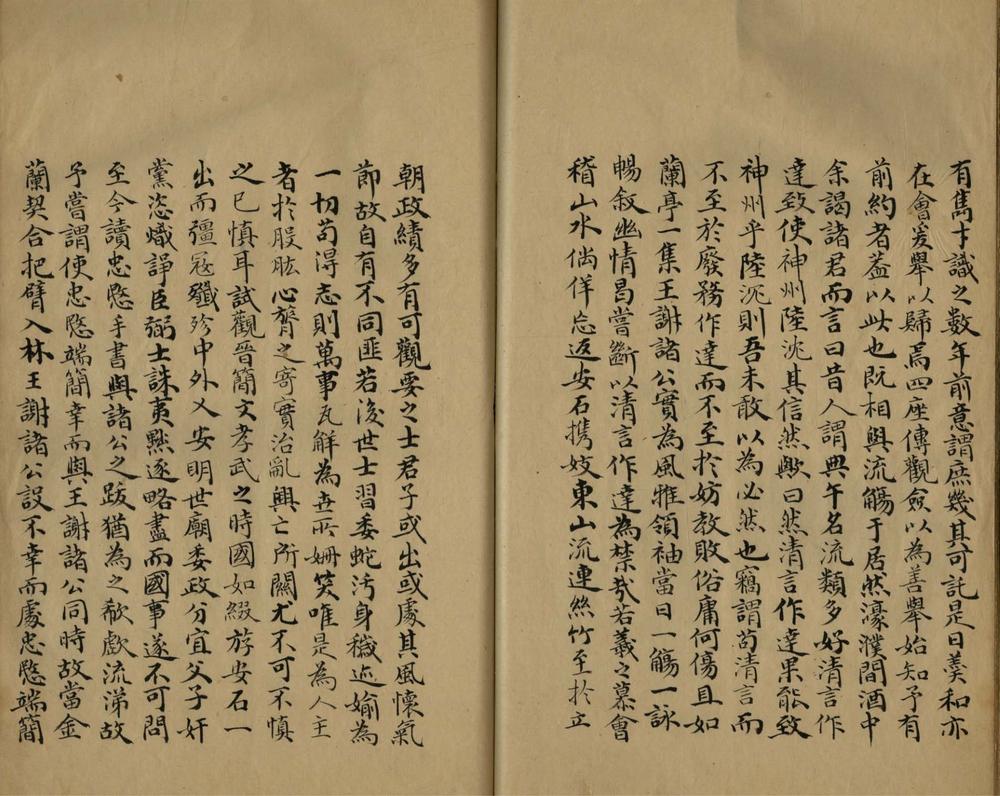 有雋才識之數年前意謂庶幾其可託是日羹和亦
在會爰舉以歸焉四座傳觀僉以為善舉始知予有
前約者葢以此也既相與流觴于居然濠濮間酒中
余謁諸君而言曰昔人謂典午名流類多好清言作
達致使神州陸沈其信然歟曰然清言作達果能致
神州乎陸沉則吾未敢以為必然也竊謂苟清言而
不至於廢務作達而不至於妨教敗俗庸何傷且如
蘭亭一集王謝諸公實為風雅領袖當日一觴一詠
暢叙幽情曷嘗斷以清言作達為禁哉若羲之慕會
稽山水倘佯忘返安石攜妓東山流連絲竹至於立
朝政績多有可觀要之士君子或出或處其風懷氣
節故自有不同匪若後世士習委蛇汚身穢迹媮為
一切苟得志則萬事瓦解為世所姍笑唯是為人主
者於股肱心膂之寄實治亂興亡所關尤不可不慎
之已慎耳試觀晉簡文孝武之時國如綴斿安石一
出而彊寇殲殄中外乂安明世廟委政分宜父子奸
黨恣熾諍臣弼士誅夷黜逐略盡而國事遂不可問
至今讀忠愍手書與諸公之跋猶為之欷歔流涕故
予嘗謂使忠愍端簡幸而與王謝諸公同時故當金
蘭契合把臂入林王謝諸公設不幸而處忠愍端簡